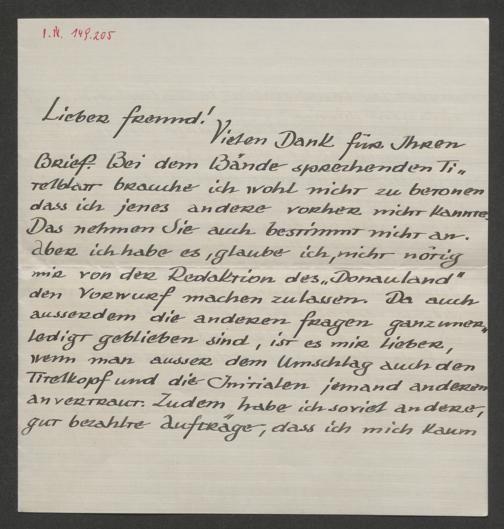 I.N. 149.205
Lieber Freund!
Vielen Dank für Ihren
Brief. Bei dem Bände sprechenden Ti-
telblatt brauche ich wohl nicht zu betonen
dass ich jenes andere vorher nicht kannte.
Das nehmen Sie auch bestimmt nicht an.
Aber ich habe es, glaube ich, nicht nötig
mir von der Redaktion des „Donauland"
den Vorwurf machen zu lassen. Da auch
ausserdem die anderen Fragen ganz uner-
ledigt geblieben sind, ist es mir lieber,
wenn man ausser dem Umschlag auch den
Titelkopf und die Initialen jemand anderem
anvertraut. Zudem habe ich soviel andere,
gut bezahlte Aufträge, dass ich mich kaum